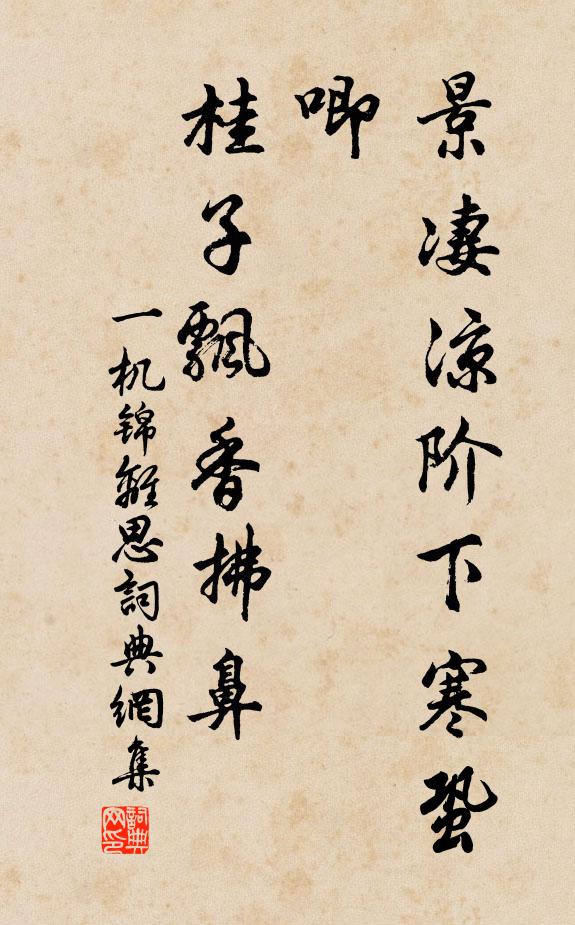 景凄凉阶下寒蛩
唧
桂子飘香拂鼻
一机錦離思詞典網集
詞典网印